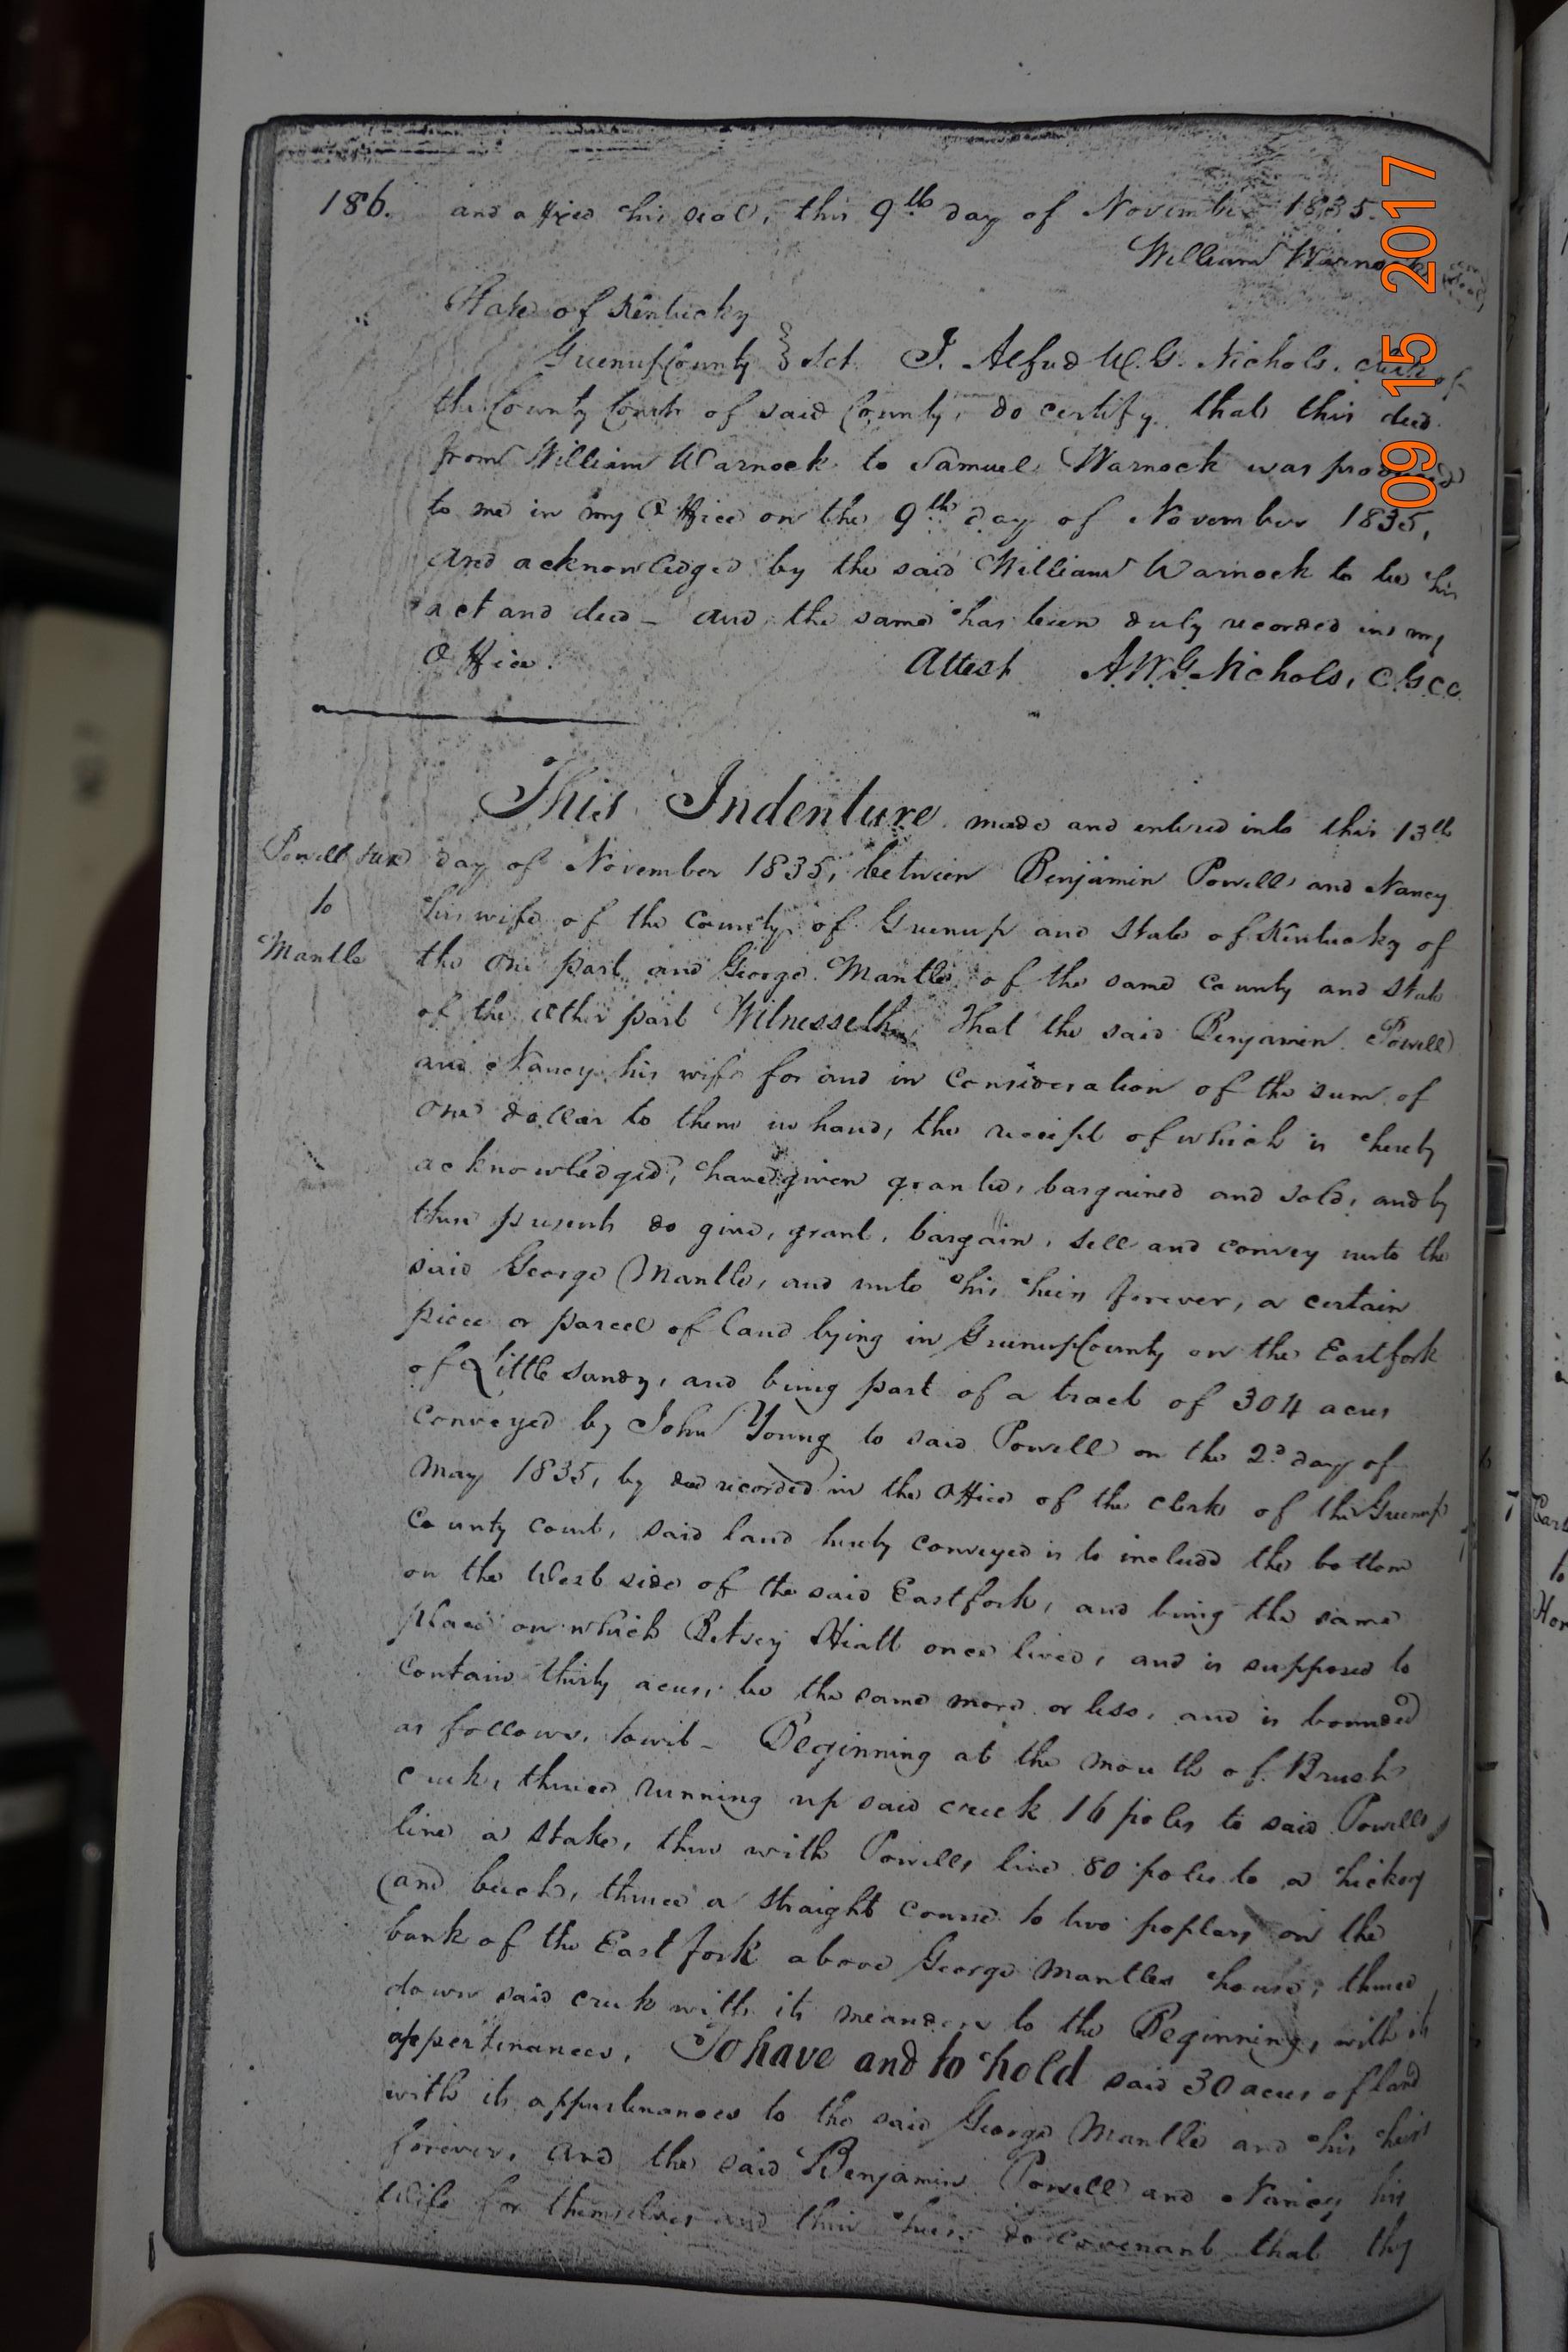 186. and affixed his seal, this 9th day of November 1835.
William Warnock
State of Kentucky
Greenup County Sct. I. Alfred W. G. Nichols, clerk of
the County Court of said County, do certify that this deed
from William Warnock to Samuel Warnock was produced
to me in my Office on the 9th day of November 1835,
and acknowledged by the said William Warnock to be his
act and deed - and the same has been duly recorded in my
Office. Attest A.W.G. Nichols, C.G.C.C.
This Indenture made and entered into this 13th
Powell & ux day of November 1835, between Benjamin Powell and Nancy
to his wife of the County of Greenup and State of Kentucky of
Mantle the one part and George Mantle of the same County and State
of the other part Witnesseth, That the said Benjamin Powell
and Nancy his wife for and in consideration of the sum of
one dollar to them in hand, the receipt of which is hereby
acknowledged, have given granted, bargained and sold, and by
these presents do give, grant, bargain, sell and convey unto the
said George Mantle, and unto his heirs forever, a certain
piece or parcel of land lying in Greenup County on the East fork
of Little Sandy, and being part of a tract of 304 acres
conveyed by John Young to said Powell on the 2d day of
May 1835, by deed recorded in the Office of the clerk of the Greenup
County Court, said land hereby conveyed is to include the bottom
on the West side of the said East fork, and being the same
place on which Betsey Hiatt once lived, and is supposed to
contain thirty acres, be the same more or less, and is bounded
as follows, towit - Beginning at the mouth of Brush
creek, thence running up said creek 16 poles to said Powells
line a stake, thence with Powells line 80 poles to a hickory
and beech, thence a straight course to two poplars on the
bank of the East fork above George Mantles house, thence
down said creek with its meanders to the Beginning, with its
appertinances, To have and to hold said 30 acres of land
with its appurtenances to the said George Mantle and his heirs
forever, and the said Benjamin Powell and Nancy his
wife for themselves and their heirs do covenant that they
09 15 2017